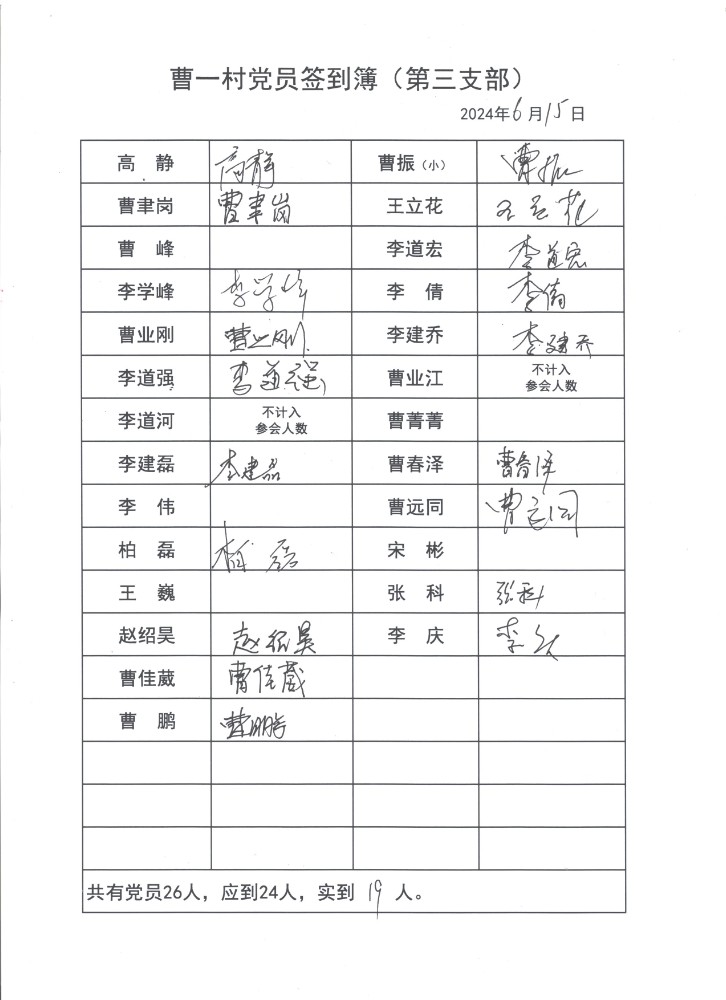 曹一村党员签到簿（第三支部）
2024年6月15日
高 静 高静 曹振（小） 曹振
曹聿岗 曹聿岗 王立花 王立花
曹 峰 李道宏 李道宏
李学峰 李学峰 李 倩 李倩
曹业刚 曹业刚 李建乔 李建乔
李道强 李道强 曹业江 不计入
参会人数
李道河 不计入
参会人数 曹菁菁
李建磊 李建磊 曹春泽 曹春泽
李 伟 曹远同 曹远同
柏 磊 柏磊 宋 彬
王 巍 张 科 张科
赵绍昊 赵绍昊 李 庆 李庆
曹佳葳 曹佳葳
曹 鹏 曹鹏
共有党员26人，应到24人，实到 19 人。